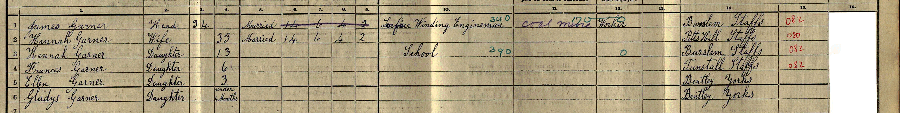 1 James Garner Head 34 Married 14 6 4 2 Surface Winding Engineman 340 coal mine Worker Burslem Staffs 082
2 Hannah Garner Wife 33 Married 14 6 4 2 Pitshill Staffs 080
3 Hannah Garner Daughter 13 School 390 0 Burslem Staffs 082
4 Frances Garner Daughter 6 Tunstall Staffs 082
5 Ellen Garner Daughter 3 Bentley Yorks
6 Gladys Garner Daughter under months Bentley Yorks